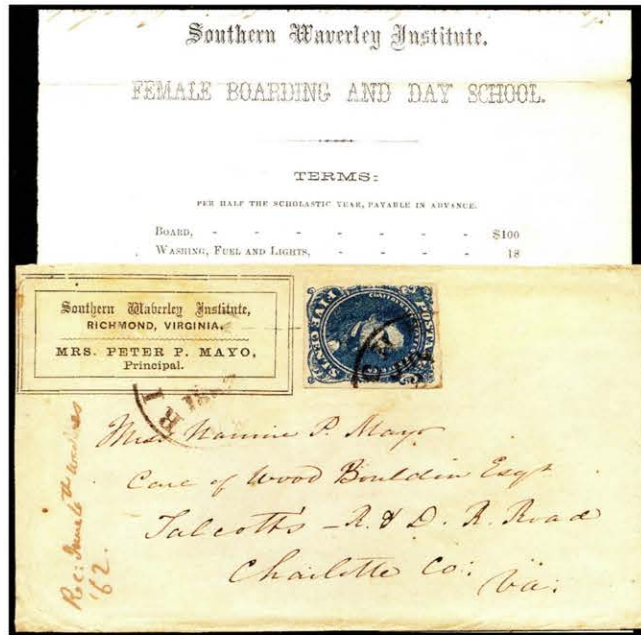 Southern Waverley Institute.
FEMALE BOARDING AND DAY SCHOOL.
TERMS:
PER HALF THE SCHOLASTIC YEAR, PAYABLE IN ADVANCE.
BOARD, - - - - - - - $100
WASHING, FUEL AND LIGHTS, - - - - - 18
Southern Waverley Institute,
RICHMOND, VIRGINIA.
MRS. PETER P. MAYO,
Principal.
FIVE CENTS
POSTAGE
RI
Miss Nannie P. Mayo
Care of Wood Bouldin Esqr
Talcott's - R. & D. R. Road
Charlotte Co:
Va:
Rec: June 6th
'62.